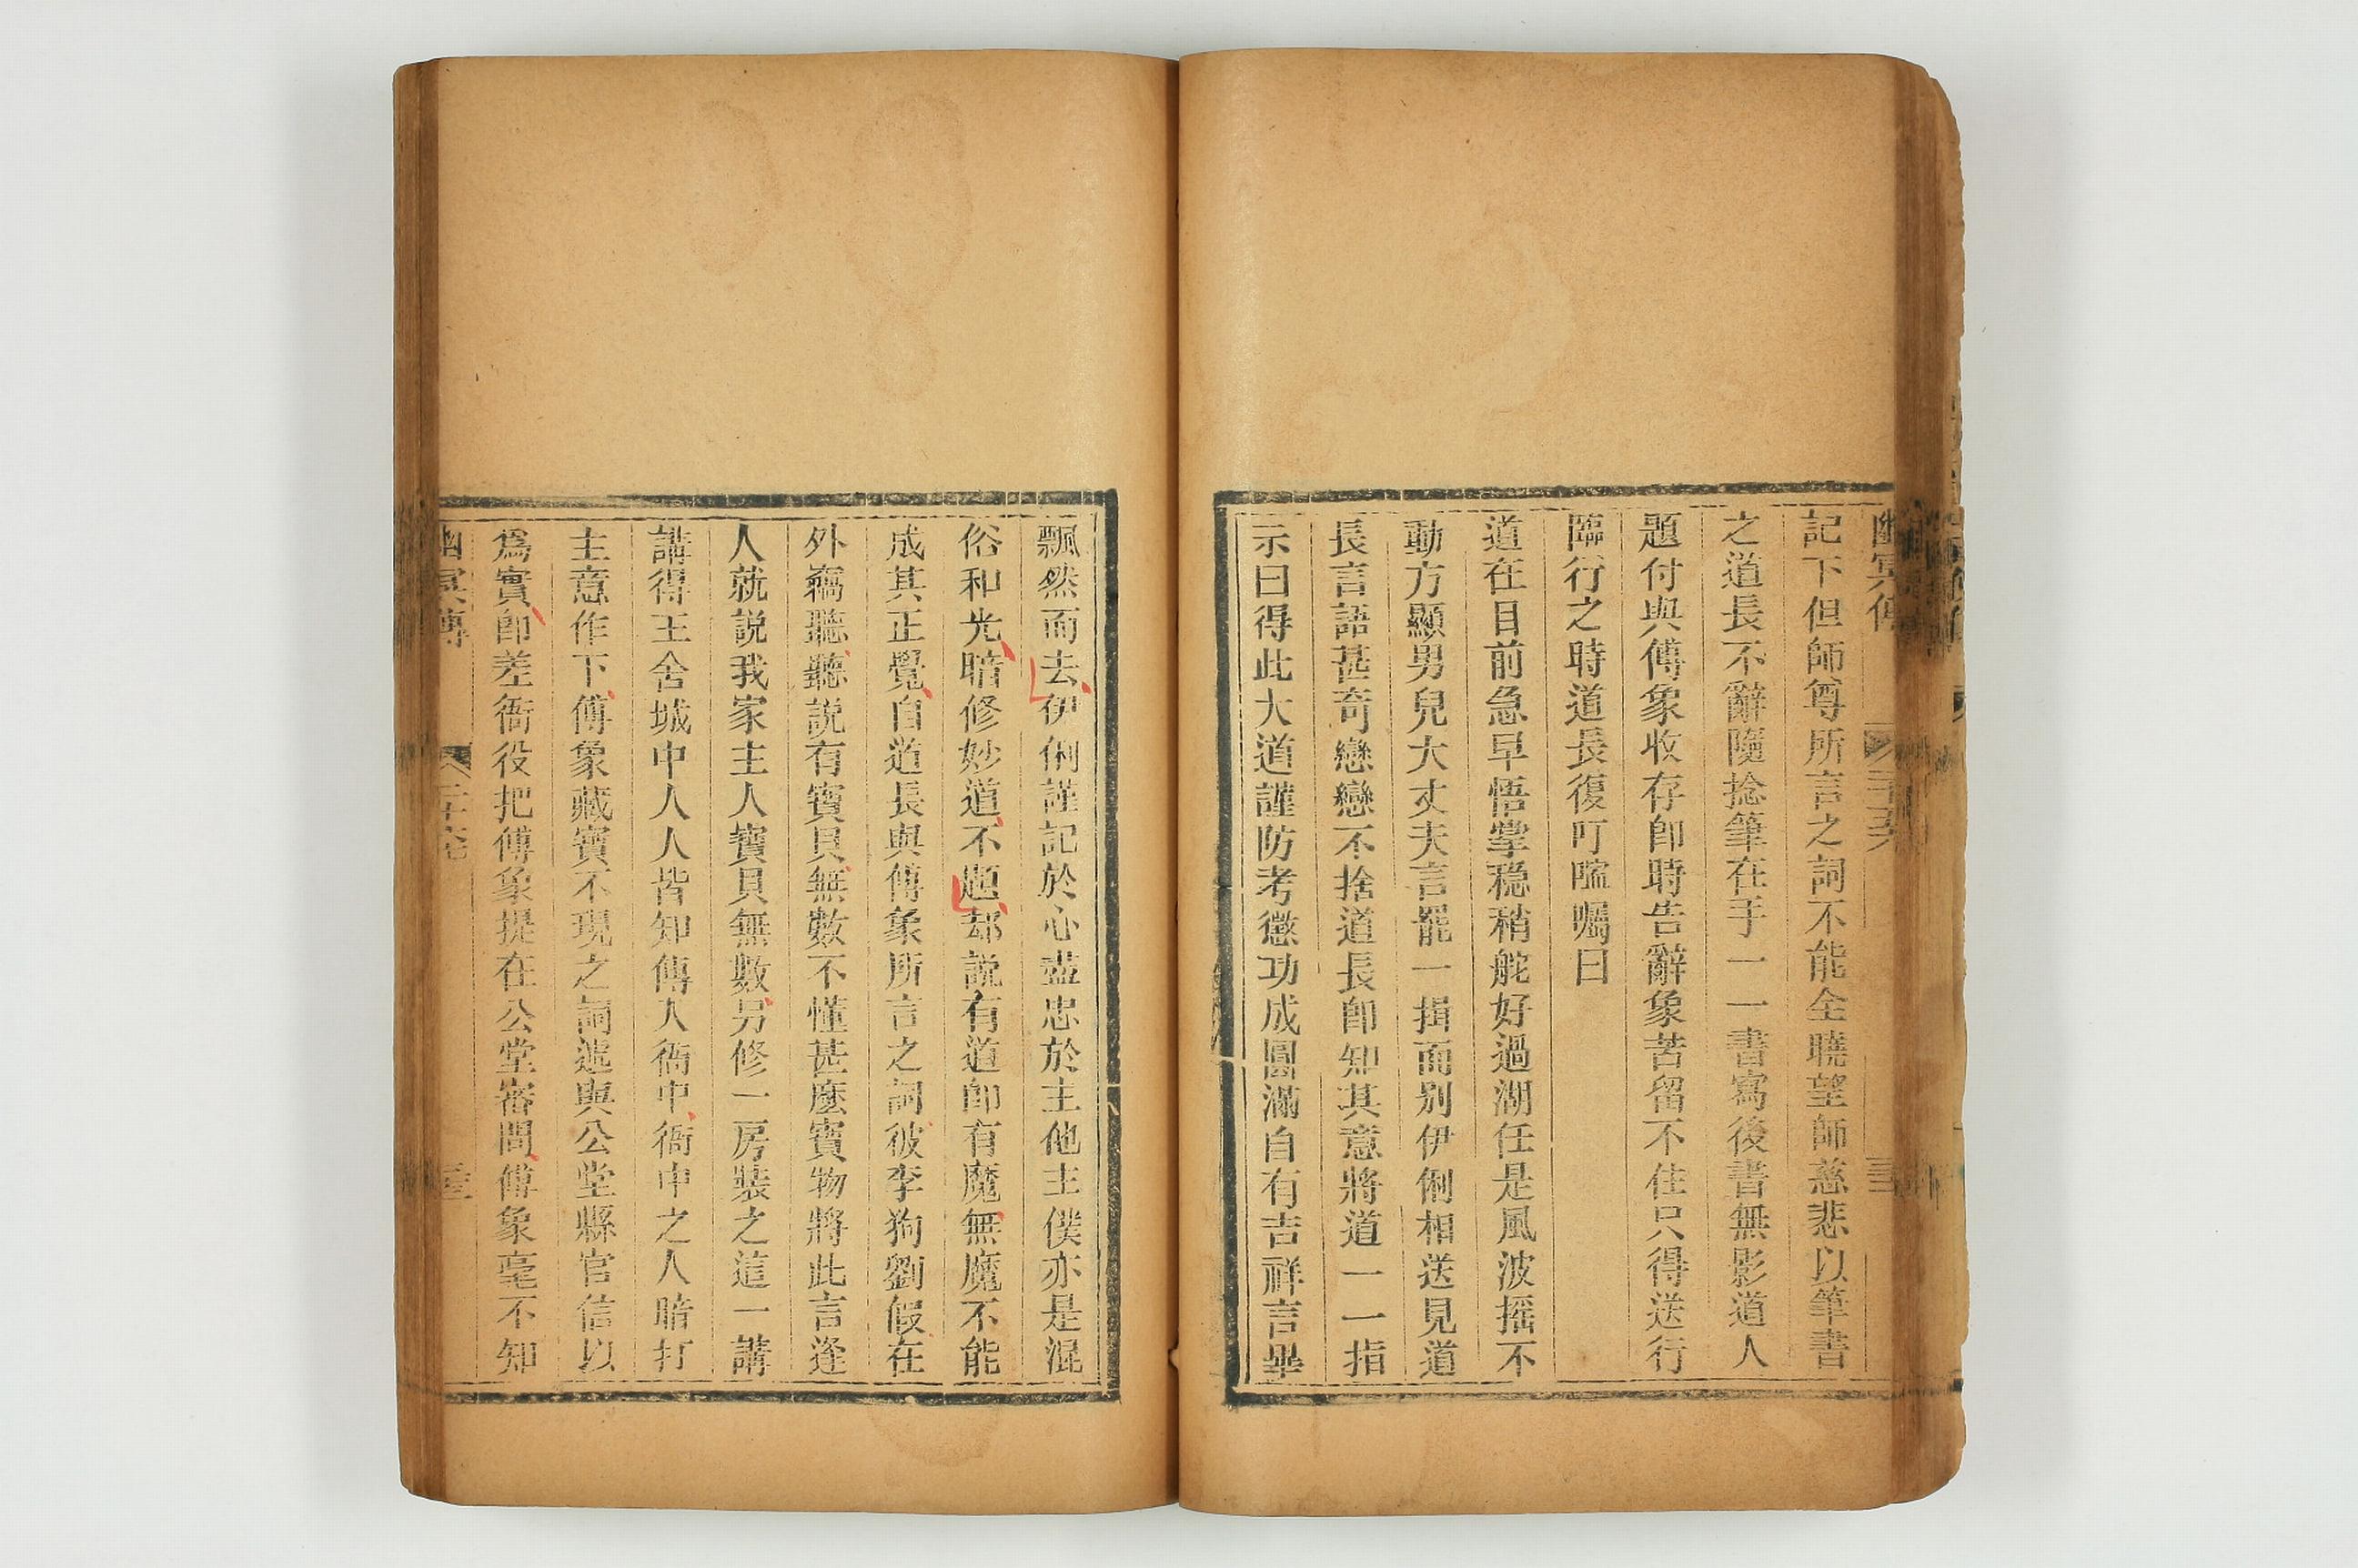 幽冥傳
記下但師尊所言之詞不能全曉望師慈悲以筆書
之道長不辭隨捻筆在手一一書寫後書無影道人
題付與傅象收存卽時告辭象苦留不住只得送行
臨行之時道長復叮嚀囑曰
道在目前急早悟掌穩稍舵好過湖任是風波搖不
動方顯男兒大丈夫言罷一揖而别伊俐相送見道
長言語甚奇戀戀不捨道長卽知其意將道一一指
示曰得此大道謹防考懲功成圓滿自有吉祥言畢
飄然而去伊俐謹記於心盡忠於主他主僕亦是混
俗和光暗修妙道不題却説有道卽有魔無魔不能
成其正覺自道長與傅象所言之詞彼李狗劉假在
外竊聽聽説有寳貝無數不懂甚麽寳物將此言逢
人就説我家主人寳貝無數另修一房裝之這一講
講得主舍城中人人皆知傳入衙中衙中之人暗打
主意作下傅象藏寳不現之詞遞與公堂縣官信以
爲實卽差衙役把傅象提在公堂審問傅象毫不知
幽冥傳